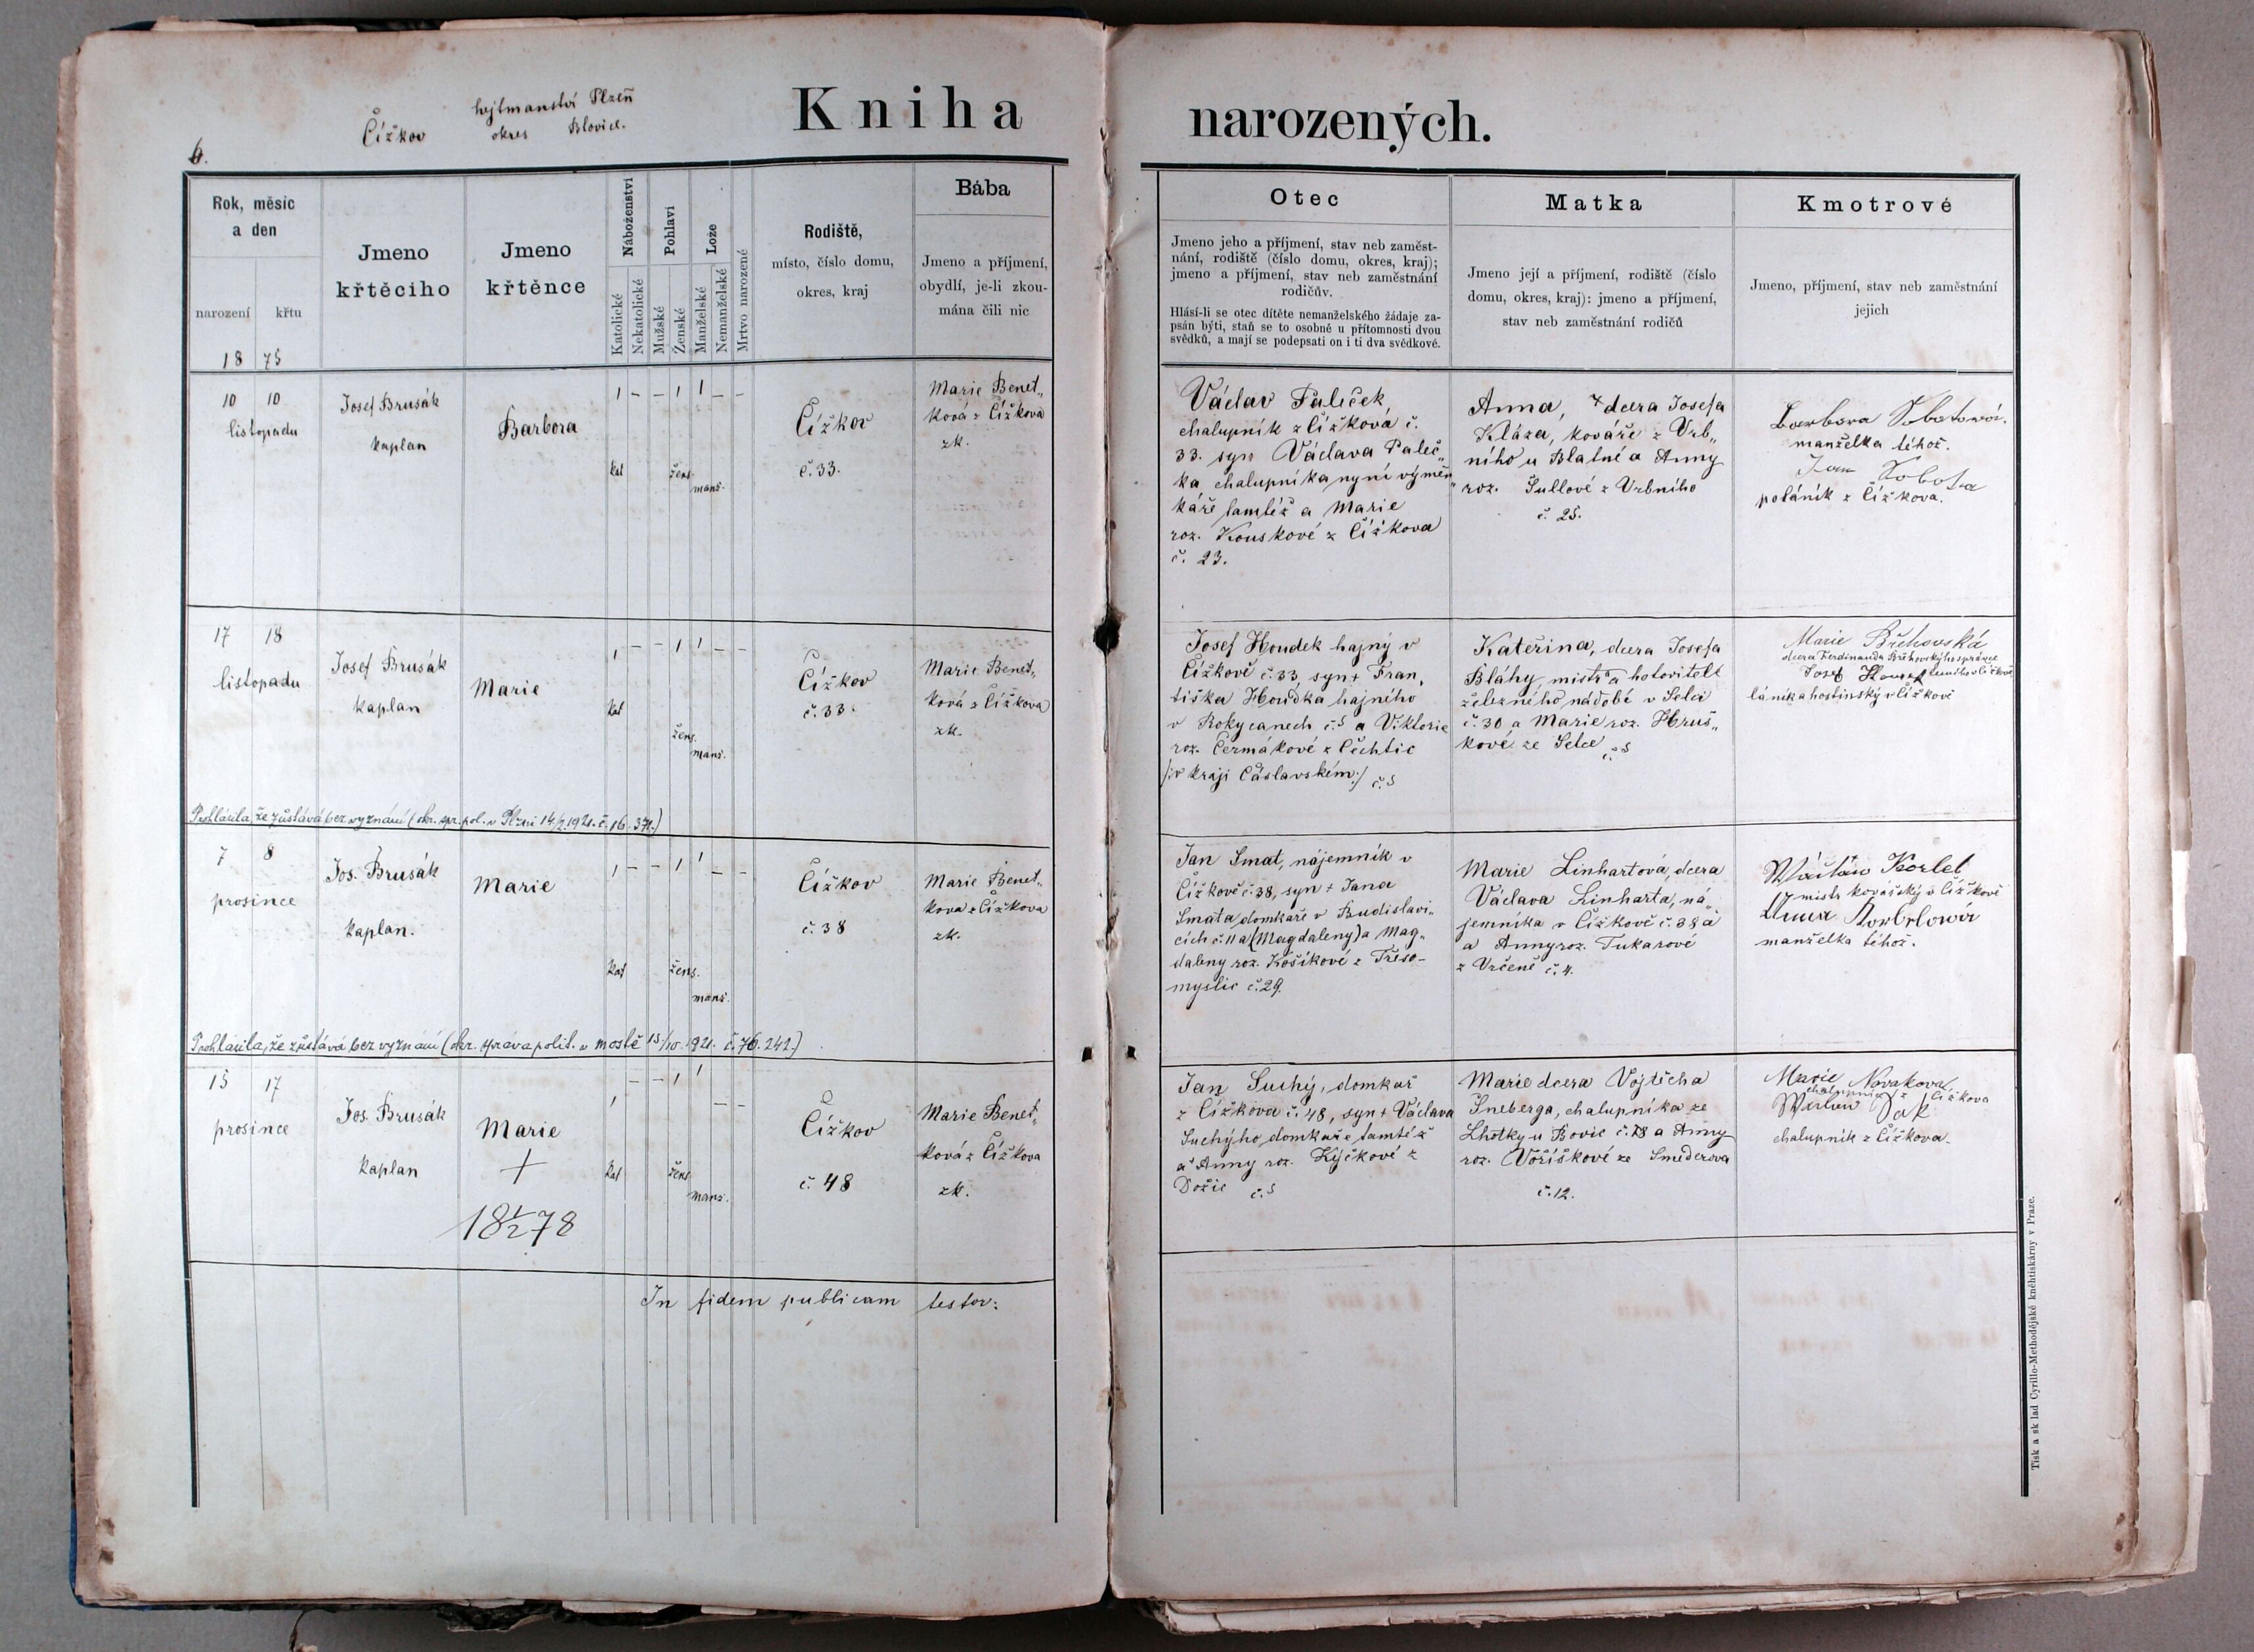 Čížkov
hejtmanství Plzeň
okres Blovice.
6.
Kniha narozených.
Rok, měsíc
a den
narození
křtu
18 75
Jmeno
křtěcího
Jmeno
křtěnce
Náboženství
Katolické
Nekatolické
Pohlaví
Mužské
Ženské
Lože
Manželské
Nemanželské
Mrtvo narozené
Rodiště,
místo, číslo domu,
okres, kraj
Bába
Jmeno a příjmení,
obydlí, je-li zkou-
mána čili nic
Otec
Jmeno jeho a příjmení, stav neb zaměst-
nání, rodiště (číslo domu, okres, kraj);
jmeno a příjmení, stav neb zaměstnání
rodičův.
Hlásí-li se otec dítěte nemanželského žádaje za-
psán býti, staň se to osobné u přítomnosti dvou
svědků, a mají se podepsati on i ti dva svědkové.
Matka
Jmeno její a příjmení, rodiště (číslo
domu, okres, kraj): jmeno a příjmení,
stav neb zaměstnání rodičů
Kmotrové
Jmeno, příjmení, stav neb zaměstnání
jejich
10 10
listopadu
Josef Brusák
kaplan
Barbora
1 - - 1 1 - -
kat
žens.
manž.
Čížkov
č. 33.
Marie Benet„
ková z Čížkova
zk.
Václav Paleček,
chalupník z Čížková č.
33. syn Václava Paleč„
ka chalupníka nyní výměn„
káře tamtéž a Marie
roz. Kouskové z Čížkova
č. 23.
Anna, dcera Josefa
Kláza, kováře z Vrb„
ního u Blatné a Anny
roz. Šullové z Vrbního
č. 25.
Barbora Sobotová
manželka téhož.
Jan Sobota
z Čížkova.
17 18
listopadu
Josef Brusák
kaplan
Marie
1 - - 1 1 - -
kat
žens.
manž.
Čížkov
č. 33.
Marie Benet„
ková z Čížkova
zk.
Josef Houdek hajný v
Čížkově č. 33, syn + Fran„
tiška Houdka hajného
v Rokycanech č. 5 a Viktorie
roz. Čermákové z Čechtic
/:v kraji Čáslavském:/ č. 5
Kateřina, dcera Josefa
Bláhy, mistra hotovitele
železného nádobé v Selci
č. 30 a Marie roz. Hruš„
kové ze Selce č. 5
Marie Břehovská
dcera Ferdinanda Břehovského správce
Josef
láník a hostinský v Čížkově
Prohlásila, že zůstává bez vyznání (okr. spr. pol. v Plzni 14/2. 1921. č. 16.371.)
7 8
prosince
Jos. Brusák
kaplan.
Marie
1 - - 1 1 - -
kat
žens.
manž.
Čížkov
č. 38
Marie Benet„
kova z Čížkova
zk.
Jan Smat, nájemník v
Čížkově č. 38, syn + Jana
Smata domkaře v Budislavi„
cích č. 11 a (Magdaleny) a Mag„
daleny roz. Košíkové z Treso-
myslic č. 29.
Marie Linhartová, dcera
Václava Linharta, ná„
jemníka v Čížkově č. 38 a
a Anny roz. Tukarové
z Vrčeně č. 4.
mistr kovářský v Čížkově
manželka téhož.
Prohlásila, že zůstává bez vyznání (okr. správa polit. v Mostě 15/10. 1921. č. 76.242.)
15 17
prosince
Jos. Brusák
kaplan
Marie
+
18 1/2 78
1 - - 1 1 - -
kat
žens.
manž.
Čížkov
č. 48
Marie Benet„
ková z Čížkova
zk.
Jan Suchý, domkař
z Čížkova č. 48, syn + Václava
Suchýho domkaře tamtéž
a Anny roz. Kyčkové z
Dožic č. 5
Marie dcera Vojtěcha
Šneberga, chalupníka ze
Lhotky u Bovic č. 78 a Anny
roz. Voříškové ze Smederova
č. 12.
Marie Novakova
z Čížkova
chalupník z Čížkova.
In fidem publicam testor:
Tisk a sklad Cyrillo-Methodějské kněhtiskárny v Praze.